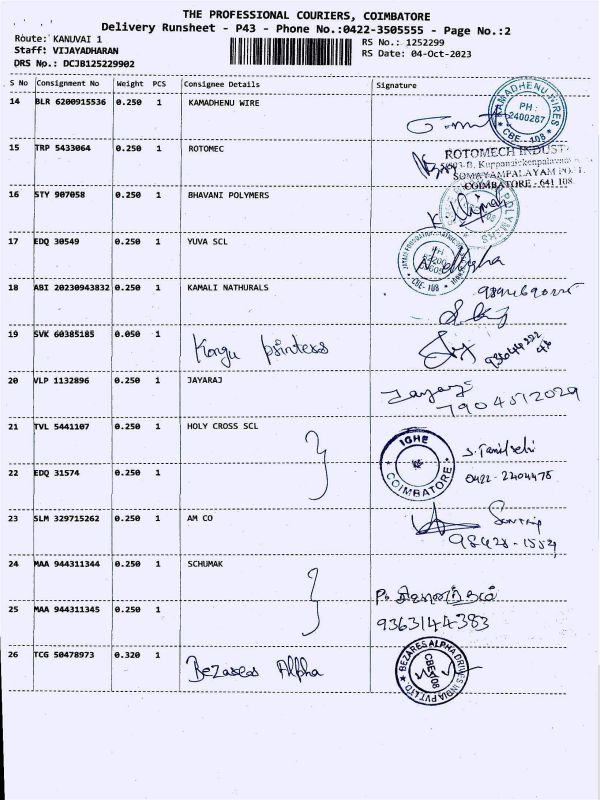 THE PROFESSIONAL COURIERS, COIMBATORE
Delivery Runsheet - P43 - Phone No.:0422-3505555 - Page No.:2
Route: KANUVAI 1
RS No.: 1252299
Staff: VIJAYADHARAN
RS Date: 04-Oct-2023
DRS Np.: DCJB125229902
S No Consignment No Weight PCS Consignee Details Signature
14 BLR 6200915536 0.250 1 KAMADHENU WIRE
KAMADHENU WIRES
PH :
2400287
CBE - 108
15 TRP 5433064 0.250 1 ROTOMEC
ROTOMECH INDUST
SOMAYAMPALAYAM PO
COIMBATORE - 641 108
16 STY 907058 0.250 1 BHAVANI POLYMERS
POLYMERS
17 EDQ 30549 0.250 1 YUVA SCL
CBE- 108
18 ABI 20230943832 0.250 1 KAMALI NATHURALS
19 SVK 60385185 0.050 1 Kongu printers
20 VLP 1132896 0.250 1 JAYARAJ
7904512029
21 TVL 5441107 0.250 1 HOLY CROSS SCL
IGHE
COIMBATORE
S. Tamilselvi
0422-2404478
22 EDQ 31574 0.250 1
23 SLM 329715262 0.250 1 AM CO
24 MAA 944311344 0.250 1 SCHUMAK
9363144383
25 MAA 944311345 0.250 1
26 TCG 50478973 0.320 1 Bezares Alpha
BEZARES ALPHA DRIVES INDIA PVT LTD.
CBE-108